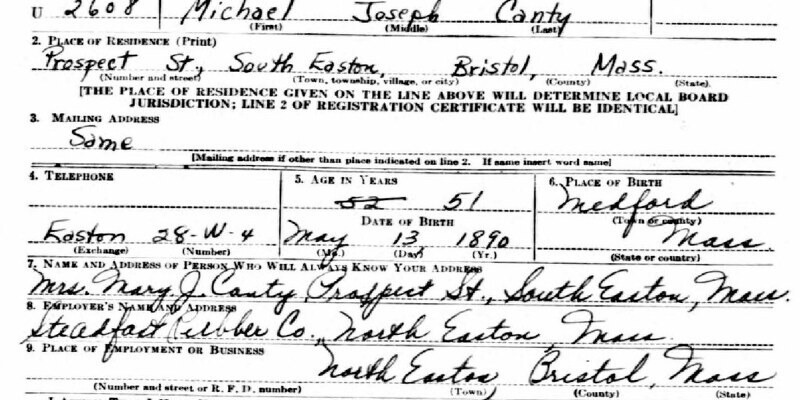 U 2608 Michael Joseph Canty
(First) (Middle) (Last)
2. PLACE OF RESIDENCE (Print)
Prospect St., South Easton, Bristol, Mass.
(Number and street) (Town, township, village, or city) (County) (State)
[THE PLACE OF RESIDENCE GIVEN ON THE LINE ABOVE WILL DETERMINE LOCAL BOARD
JURISDICTION; LINE 2 OF REGISTRATION CERTIFICATE WILL BE IDENTICAL]
3. MAILING ADDRESS
Same
[Mailing address if other than place indicated on line 2. If same insert word same]
4. TELEPHONE 5. AGE IN YEARS 6. PLACE OF BIRTH
52 51 Medford
DATE OF BIRTH (Town or county)
Easton 28-W-4 May 13 1890 Mass.
(Exchange) (Number) (Mo.) (Day) (Yr.) (State or country)
7. NAME AND ADDRESS OF PERSON WHO WILL ALWAYS KNOW YOUR ADDRESS
Mrs. Mary J. Canty, Prospect St., South Easton, Mass.
8. EMPLOYER'S NAME AND ADDRESS
Steadfast Rubber Co., North Easton, Mass.
9. PLACE OF EMPLOYMENT OR BUSINESS
North Easton Bristol, Mass
(Number and street or R. F. D. number) (Town) (County) (State)